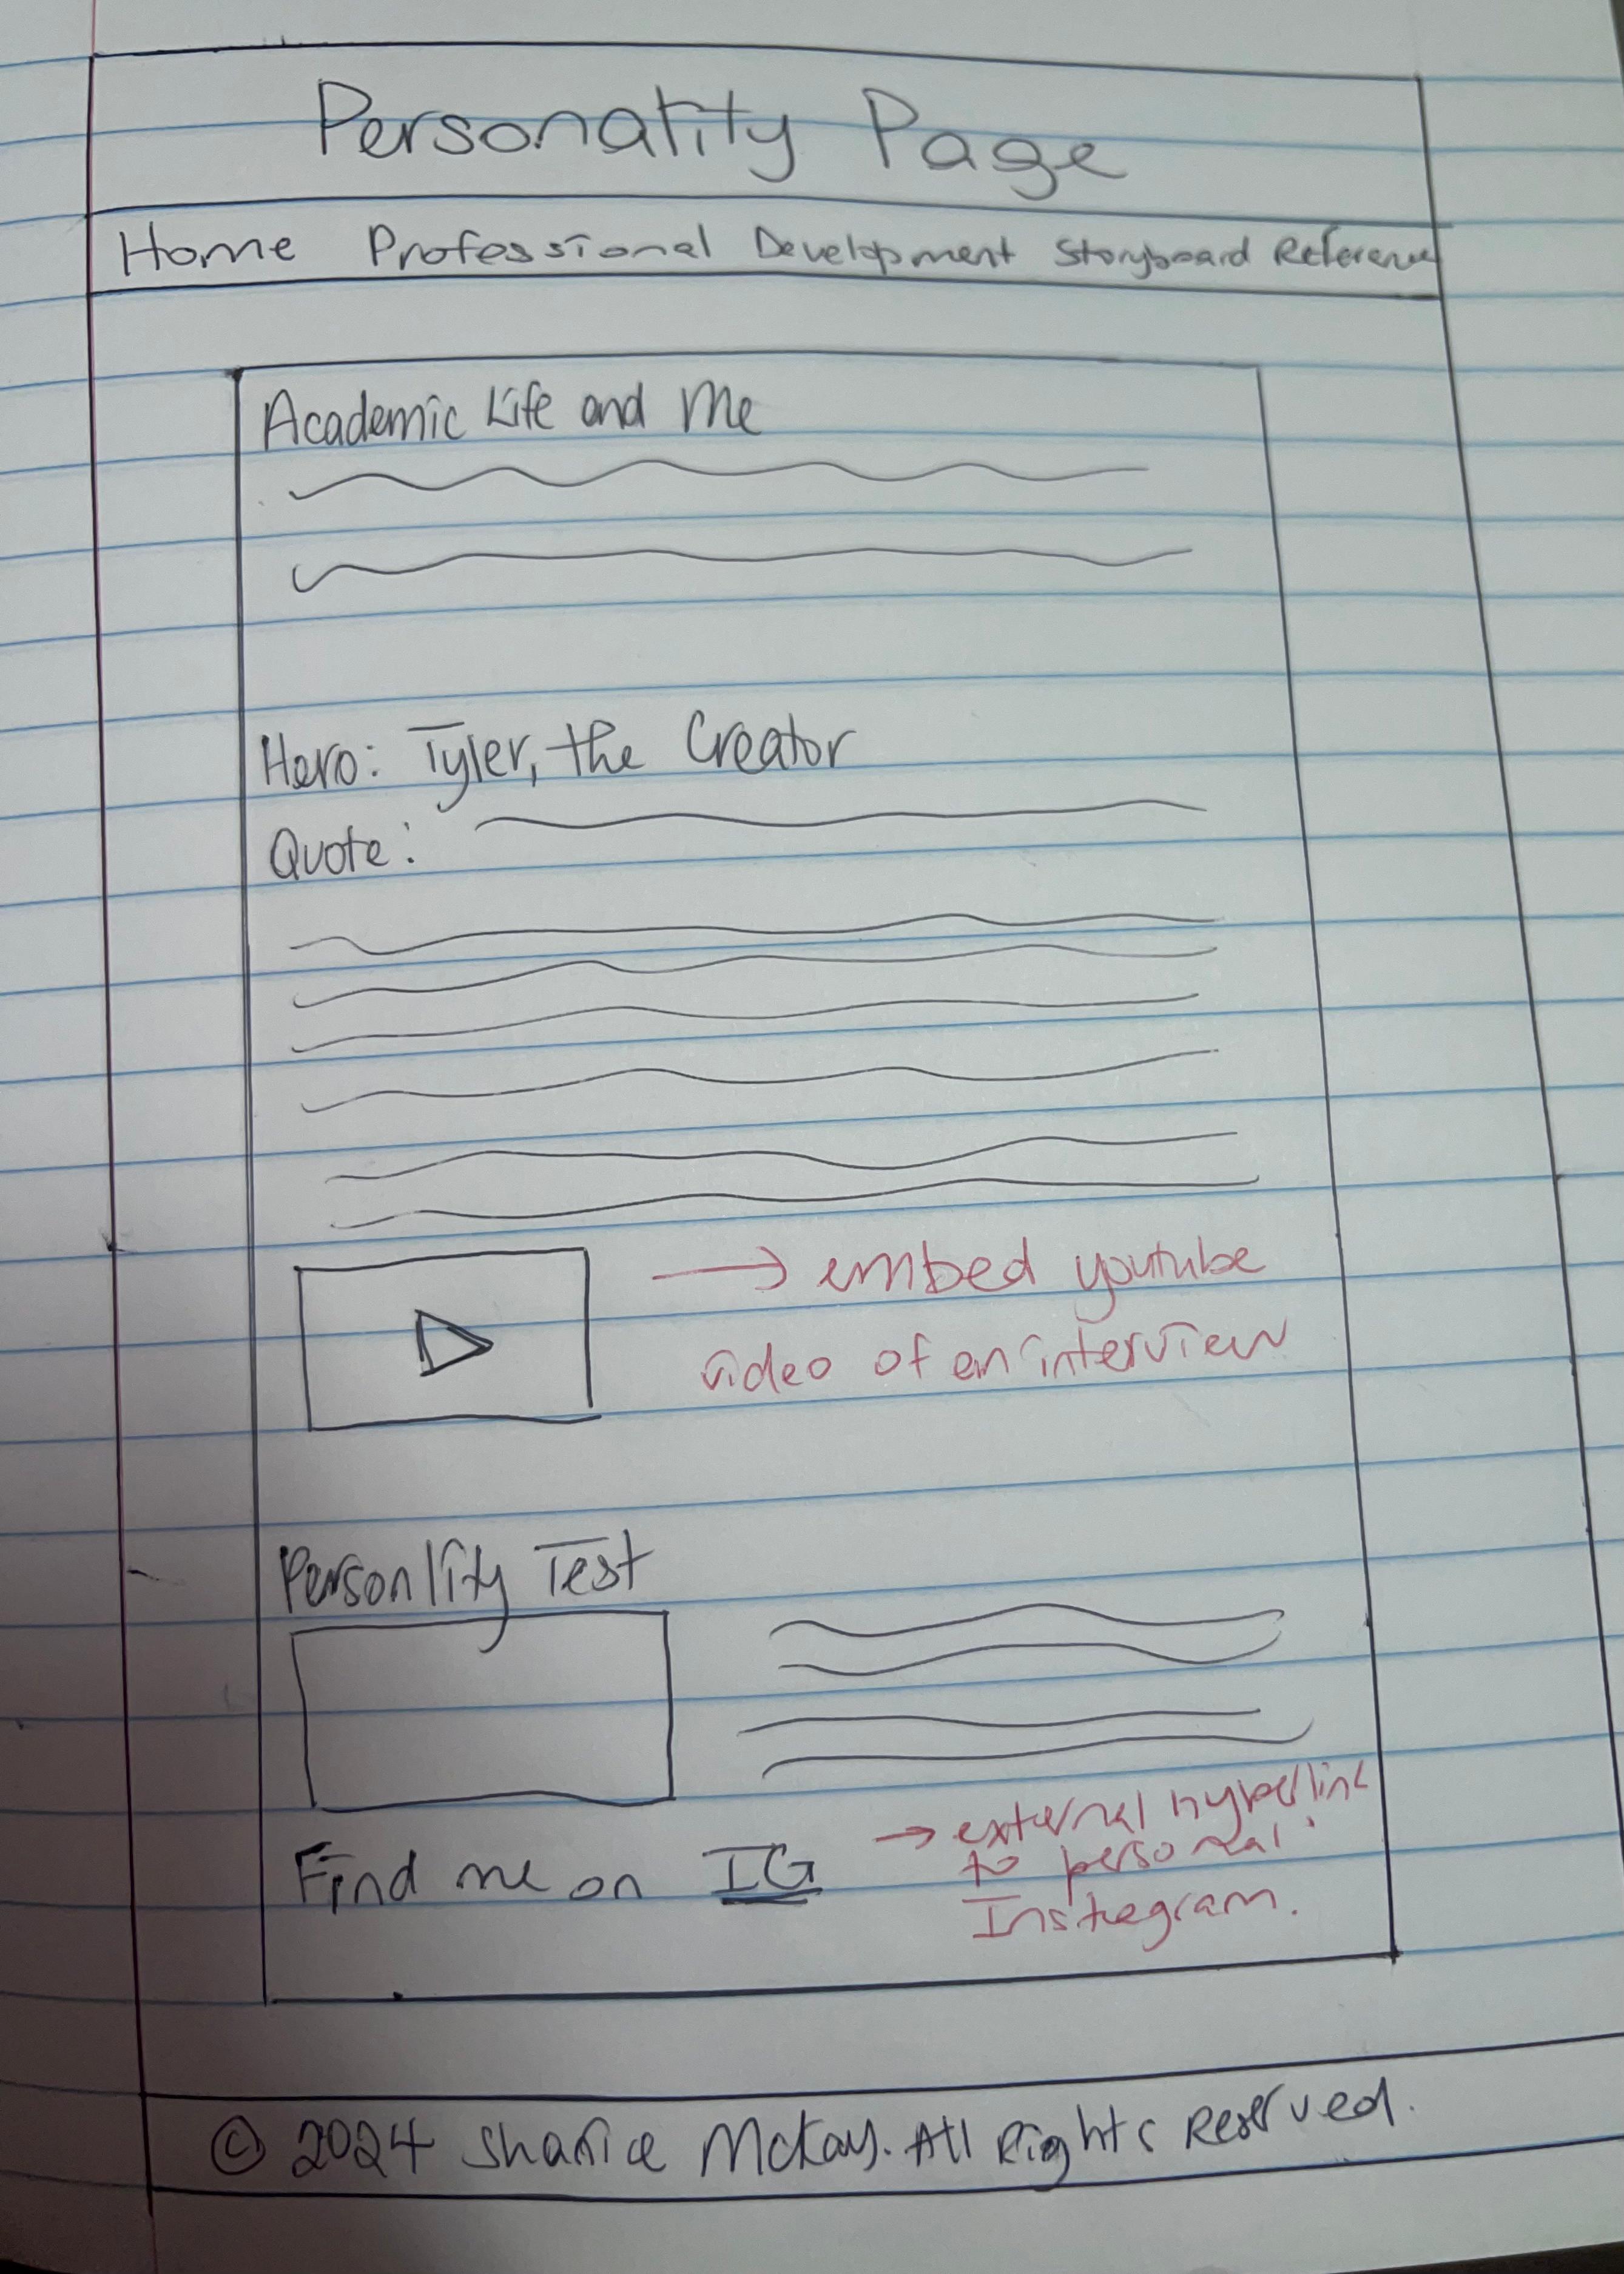 Personality Page
Home Professional Development Storyboard Reference
Academic Life and Me
Hero: Tyler, the Creator
Quote:
→ embed youtube
video of an interview
Personlity Test
Find me on IG
→ external hyperlink
to personal
Instagram.
© 2024 Sharice McKay. All Rights Reserved.